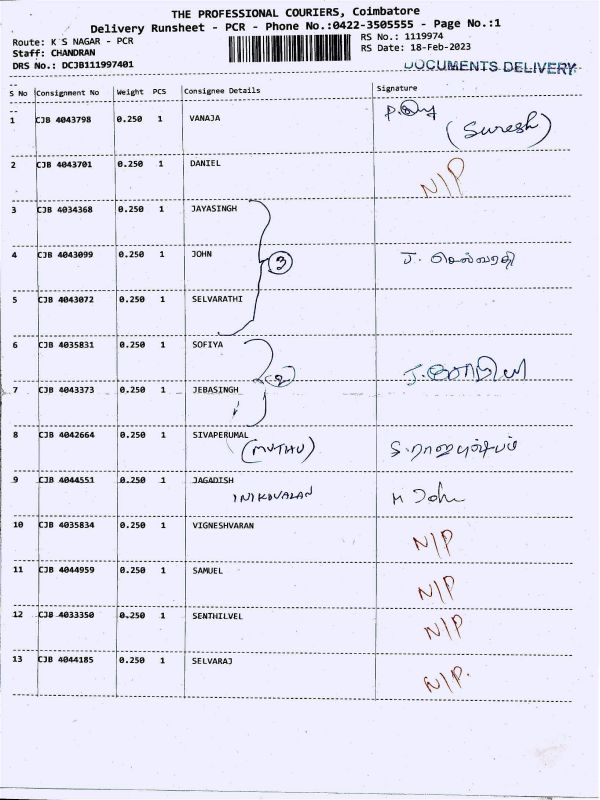 THE PROFESSIONAL COURIERS, Coimbatore
Delivery Runsheet - PCR - Phone No.:0422-3505555 - Page No.:1
Route: K S NAGAR - PCR
RS No.: 1119974
Staff: CHANDRAN
RS Date: 18-Feb-2023
DRS No.: DCJB111997401
DOCUMENTS DELIVERY
S No Consignment No Weight PCS Consignee Details Signature
1 CJB 4043798 0.250 1 VANAJA
(Suresh)
2 CJB 4043701 0.250 1 DANIEL N/P
3 CJB 4034368 0.250 1 JAYASINGH
4 CJB 4043099 0.250 1 JOHN 3 J. செல்வரதி
5 CJB 4043072 0.250 1 SELVARATHI
6 CJB 4035831 0.250 1 SOFIYA
2 J. சோபியா
7 CJB 4043373 0.250 1 JEBASINGH
8 CJB 4042664 0.250 1 SIVAPERUMAL
(MUTHU)
9 CJB 4044551 0.250 1 JAGADISH
INIKOVALAN M John
10 CJB 4035834 0.250 1 VIGNESHVARAN N/P
11 CJB 4044959 0.250 1 SAMUEL N/P
12 CJB 4033350 0.250 1 SENTHILVEL N/P
13 CJB 4044185 0.250 1 SELVARAJ N/P.